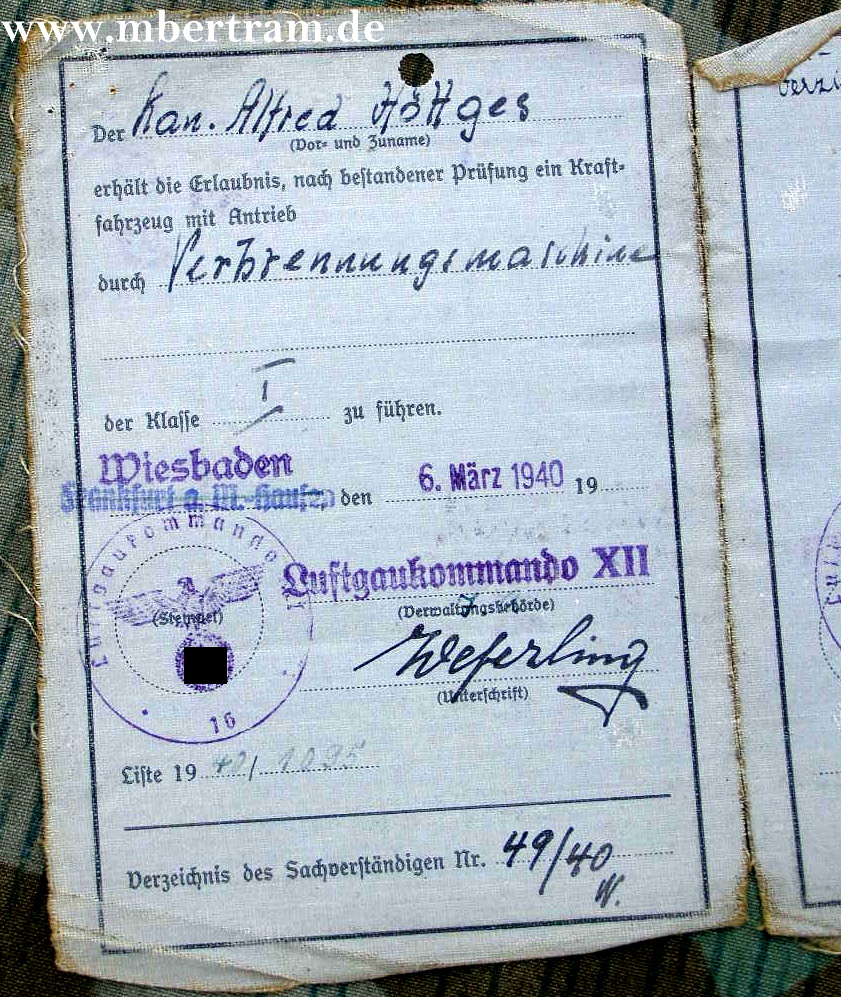 www.mbertram.de
Der Kan. Alfred Höttges
(Vor- und Zuname)
erhält die Erlaubnis, nach bestandener Prüfung ein Kraft-
fahrzeug mit Antrieb
durch Verbrennungsmaschine
der Klasse I zu führen.
Wiesbaden
Frankfurt a. M.-Hausen den 6. März 1940 19
Luftgaukommando
Luftgaukommando XII
(Stempel)
(Verwaltungsbehörde)
Weferling
(Unterschrift)
16
Liste 19 40/1095
Verzeichnis des Sachverständigen Nr. 49/40
W.